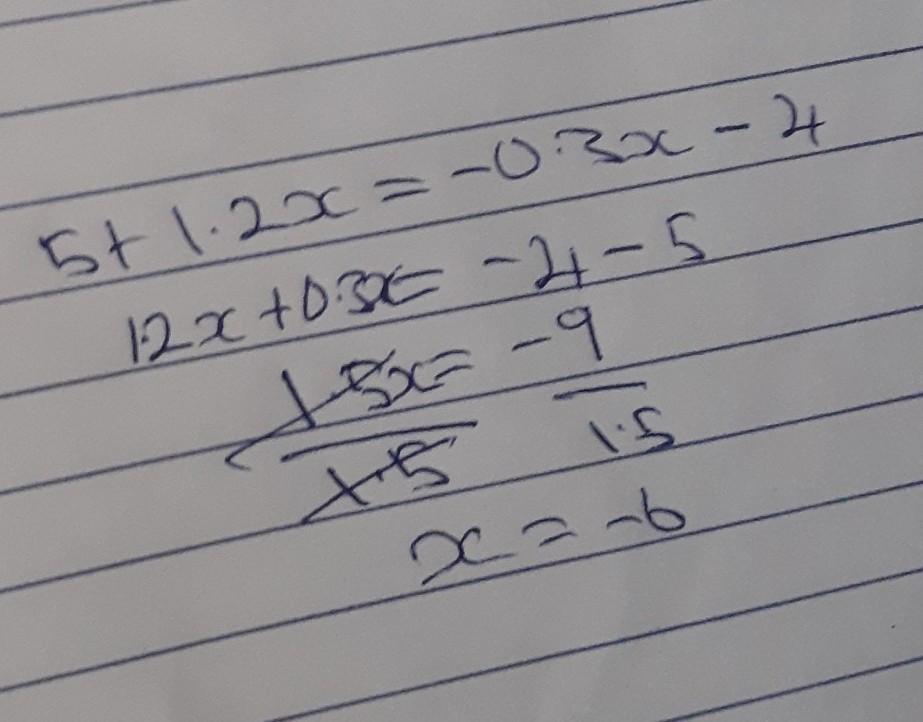 5+ 1.2x = -0.3x - 4
1.2x + 0.3x = -4 - 5
1.5x = -9
1.5 1.5
x = -6